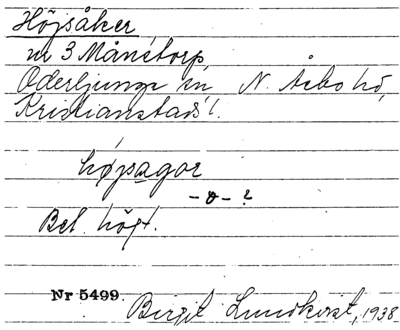 Höjsåker
nr 3 Månstorp,
Oderljunga sn N. Åsbo hd,
Kristianstads l.
höjsagor
-o- ?
Bel. högt.
Nr 5499.
Birgit Lundkvist, 1938